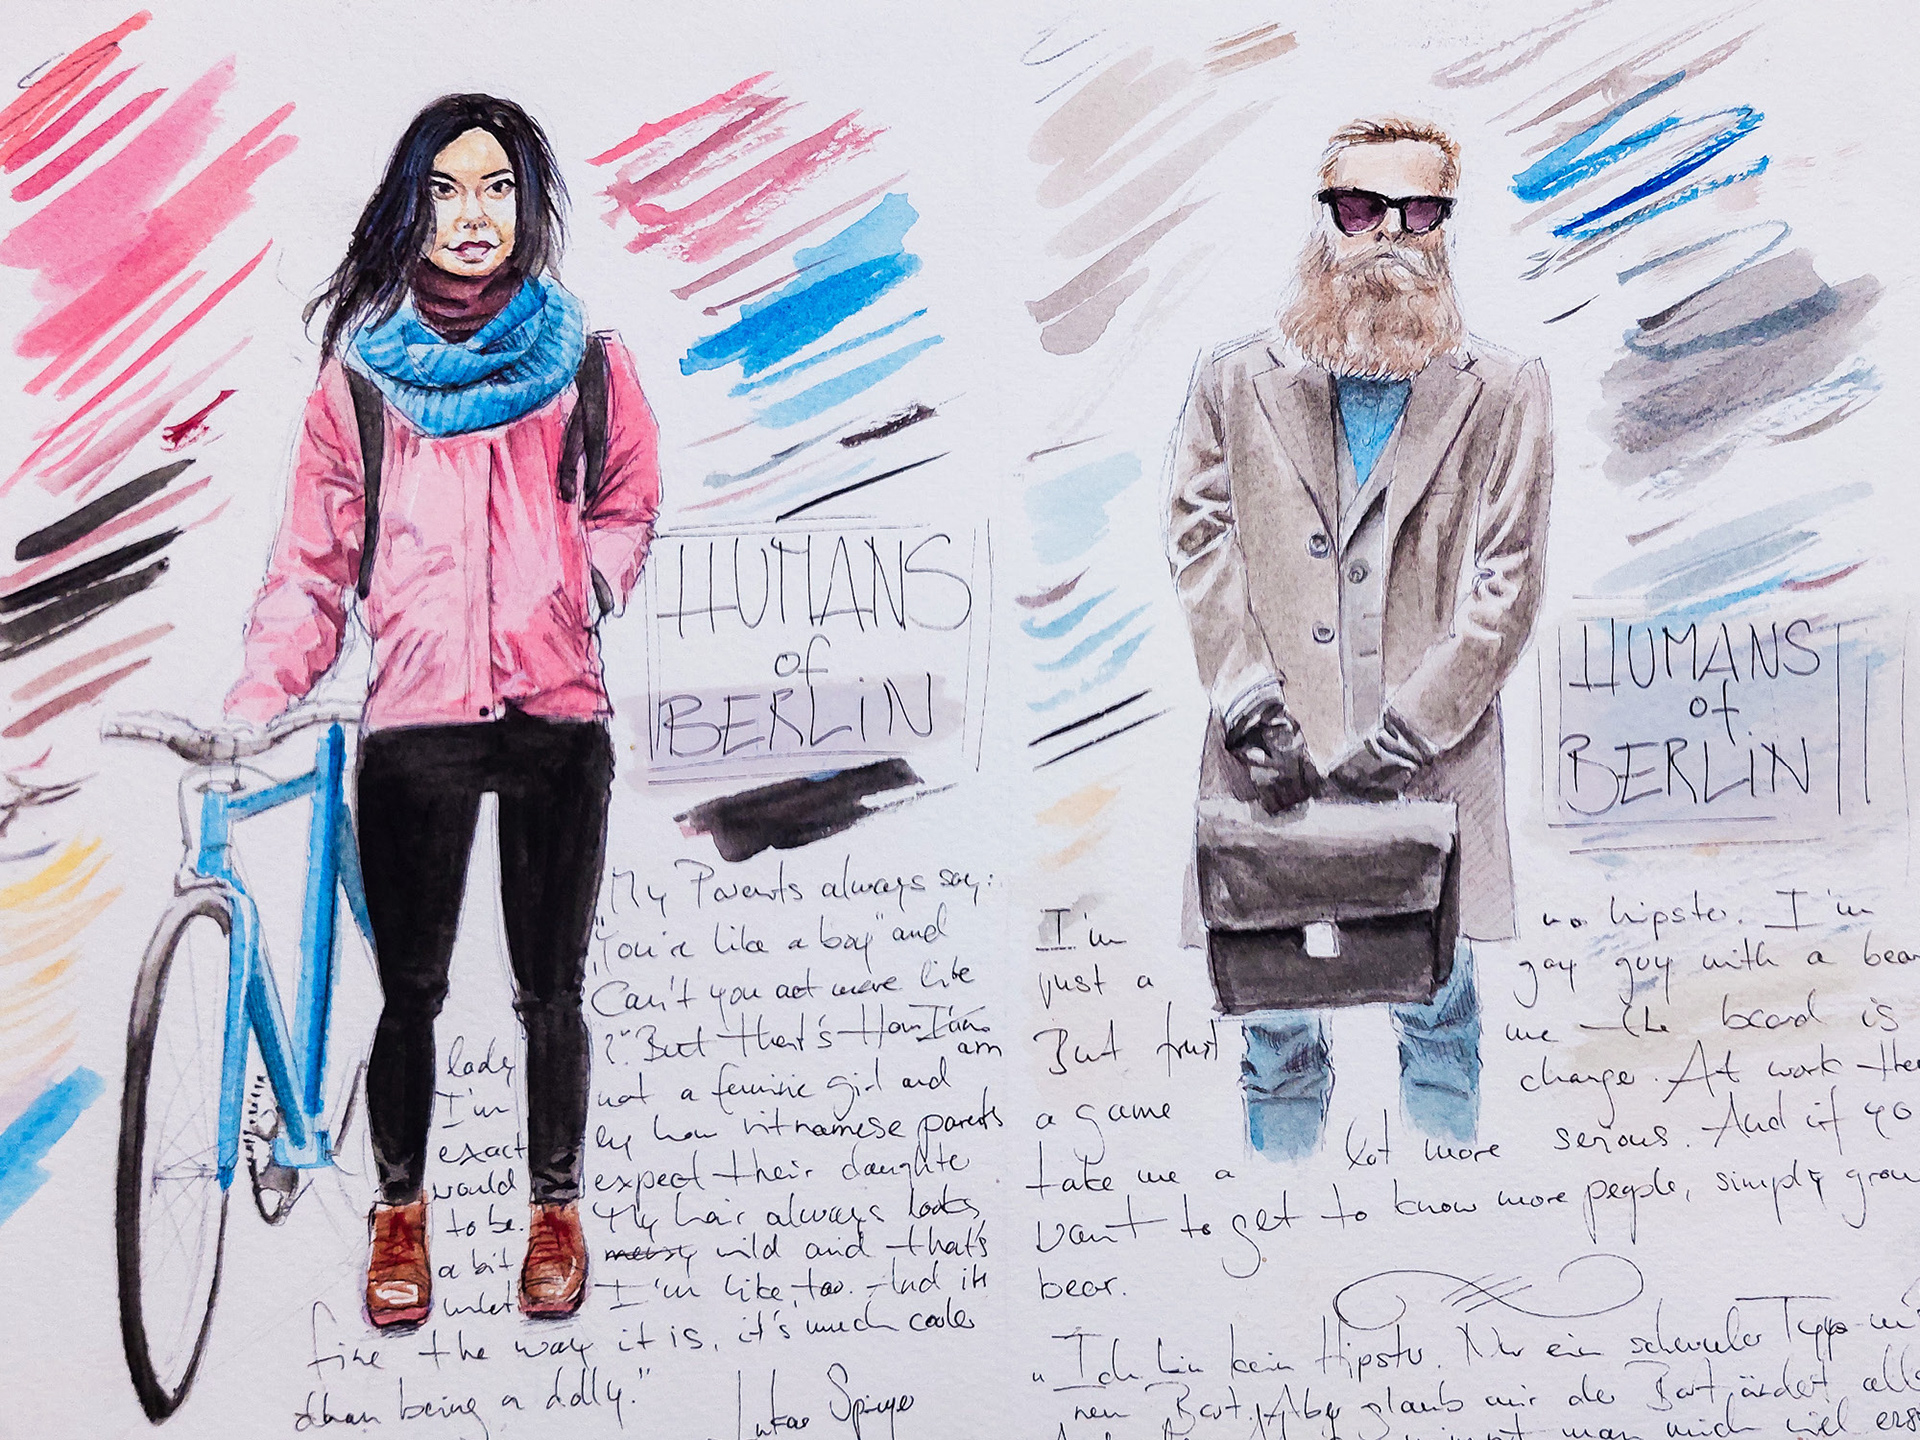 HUMANS
of
BERLiN
My Parents always say:
"You're like a boy" and
Can't you act more like
lady ?" But that's How I'm am
I'm not a feminie girl and
exact ly how vitnamese parents
would expect their daughter
to be. My hair always looks
a bit messy wild and that's
I'm like, too. And it's
fine the way it is, it's much cooler
than being a dolly."
Lukas
HUMANS
of
BERLiN
I'm no hipster. I'm
just a gay guy with a bear
But trust me - the beard is
a game change. At work the
take me a lot more serious. And if yo
want to get to know more people, simply grow
bear.
"Ich bin kein Hipster. Nur ein schwuler Typ mi
nen Bart. Aber glaub mir der Bart ändert alle
nimmt man mich viel erns